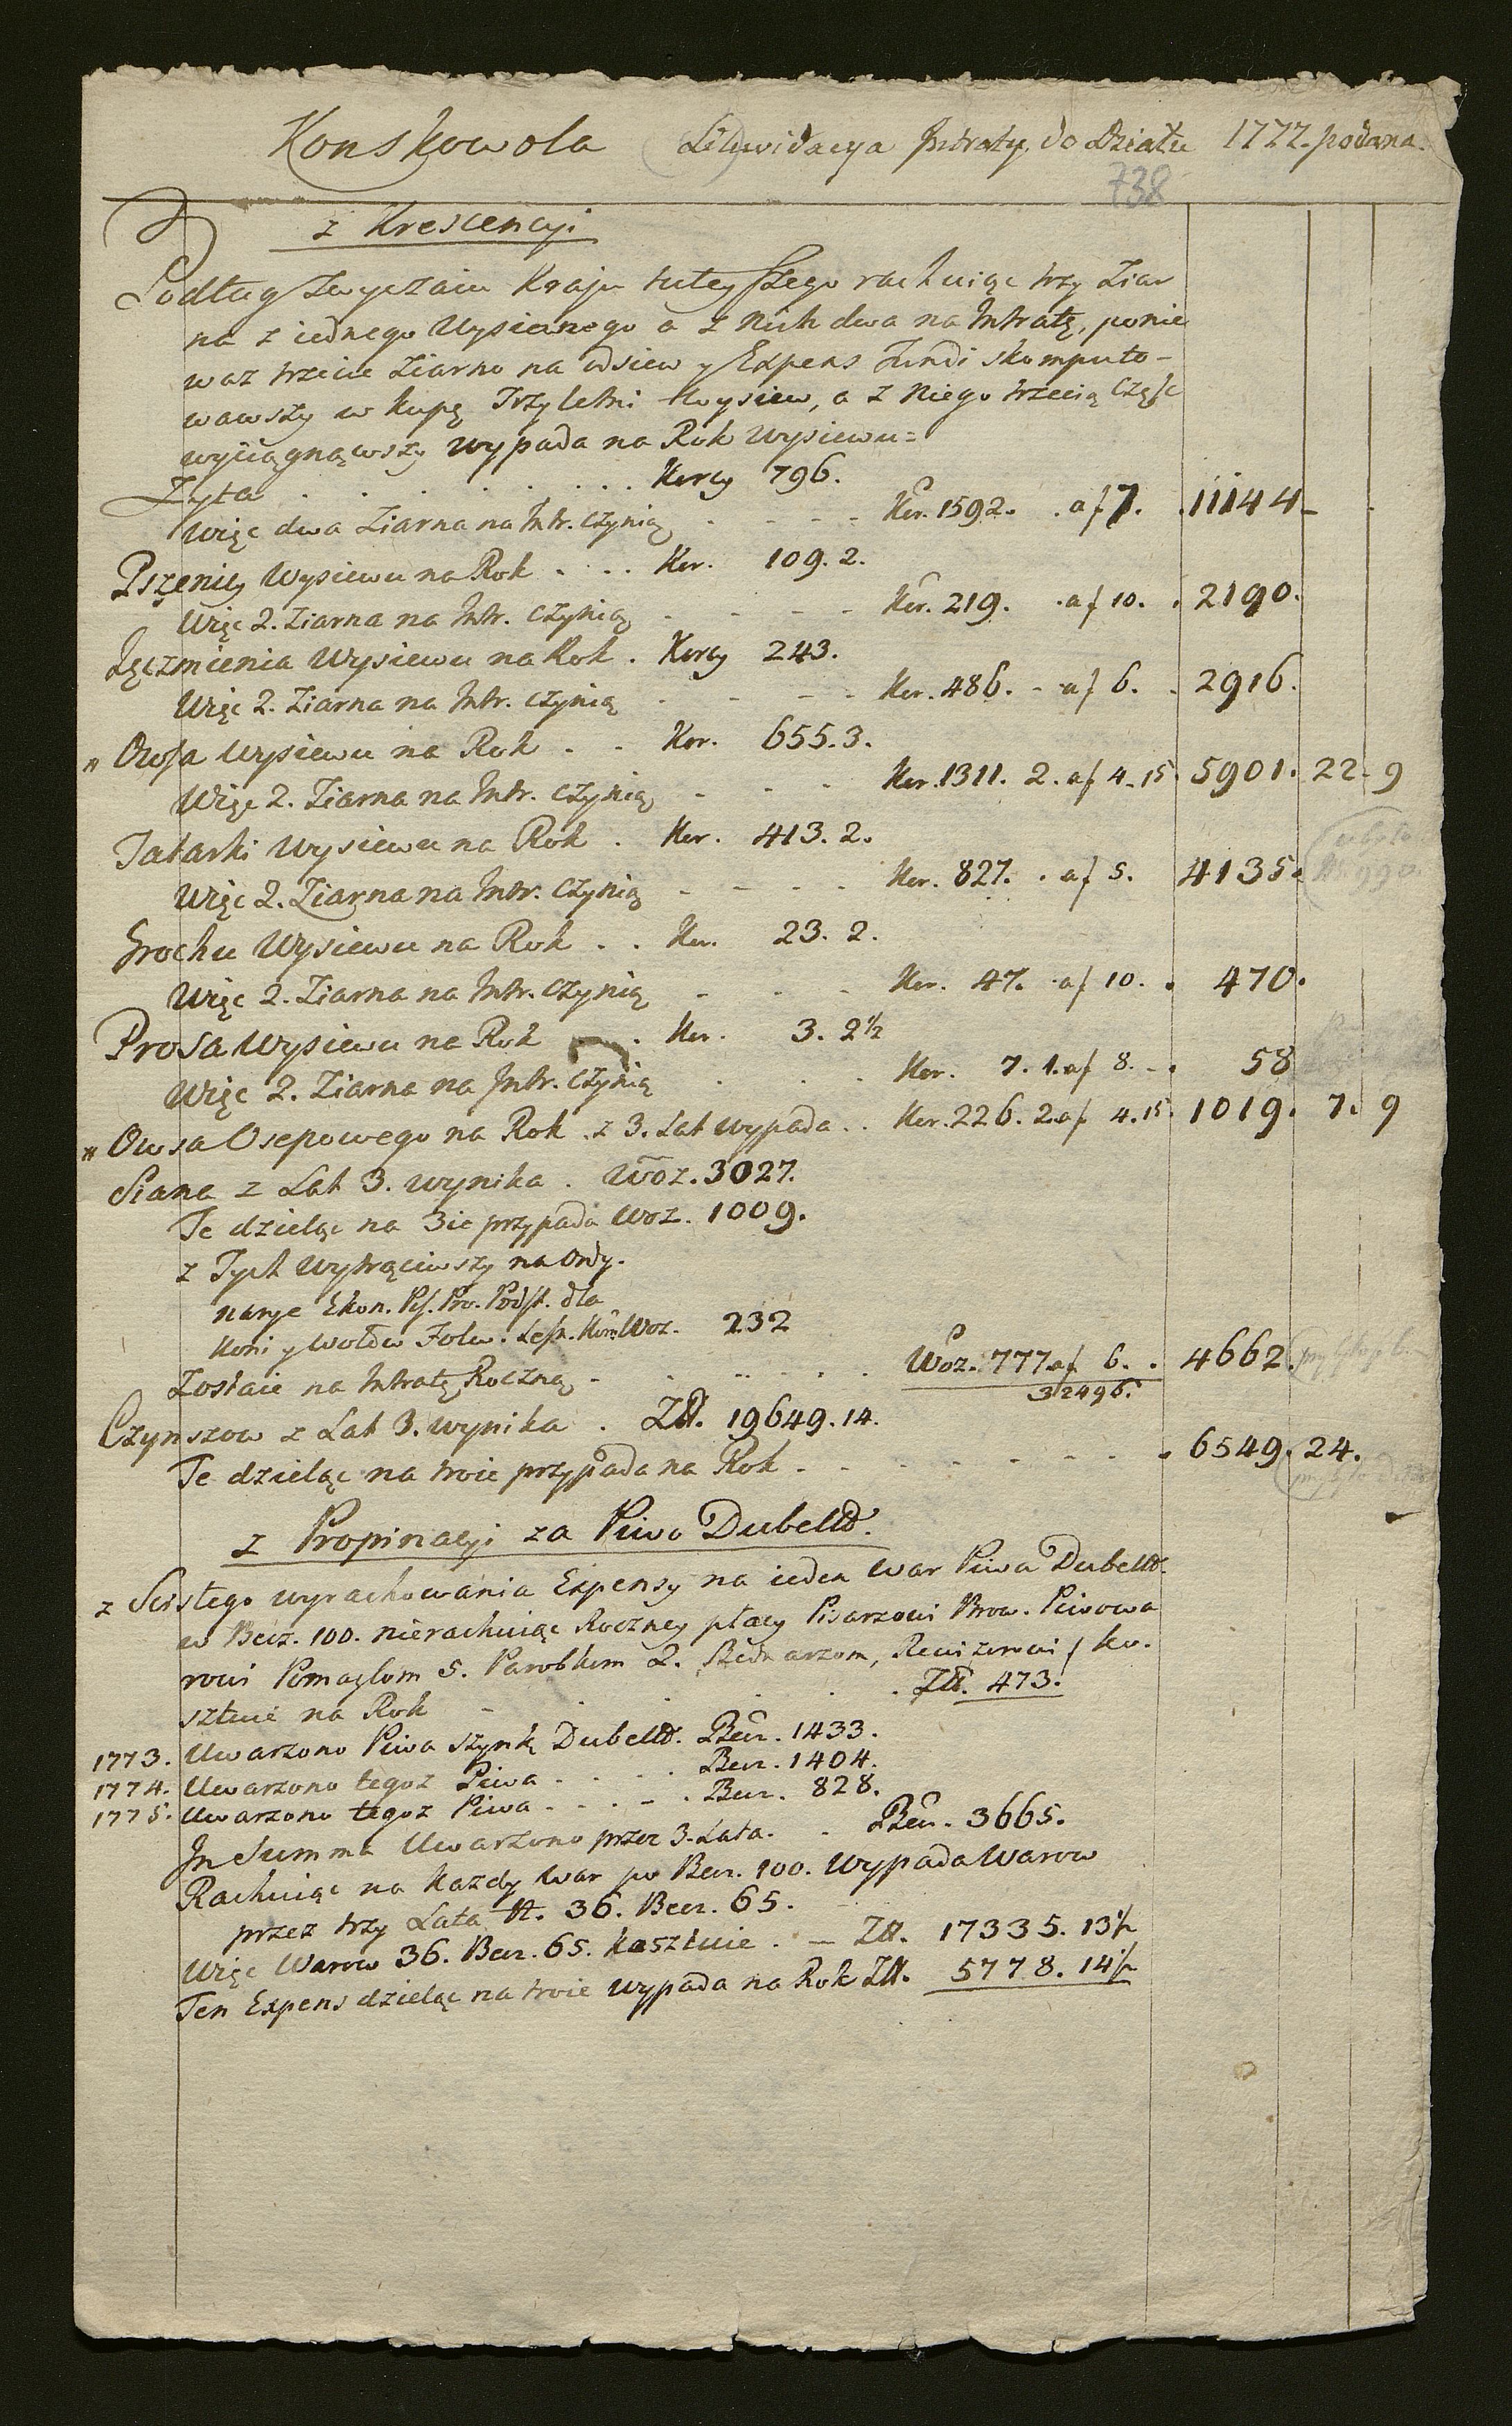 Konskowola Likwidacya Intraty do Działu 1777. podana.
738
z Krescencyi
Podług Zwyczaiu Kraju tuteyszego rachuiąc trzy Ziar
na z iednego Wysiewnego a z nich dwa na Intratę, ponie
waz trzecie Ziarno na odsiew y Expens Fundi skomputo-
wawszy w kupę Trzyletni Wysiew, a z niego trzecią część
wyciągnąwszy wypada na Rok Wysiewu=
Zyta . . . . . . . . . Korcy 796.
Więc dwa Ziarna na Intr. czynią - - - - Kor. 1592. . a f 7. . 11144-
Pszenicy Wysiewu na Rok . . . Kor. 109. 2.
Więc 2. Ziarna na Intr. Czynią - - - - Kor. 219. . a f 10. . 2190.
Jęczmienia Wysiewu na Rok . Korcy 243.
Więc 2. Ziarna na Intr. Czynią - - - - Kor. 486. - a f 6. . 2916.
" Owsa Wysiewu na Rok . . Kor. 655. 3.
Więc 2. Ziarna na Intr. Czynią - - - Kor. 1311. 2. a f 4. 15. 5901. 22. 9
Tatarki Wysiewu na Rok . Kor. 413. 2.
Więc 2. Ziarna na Intr. Czynią - - - - Kor. 827. . a f 5. 4135.
Grochu Wysiewu na Rok . . Kor. 23. 2.
Więc 2. Ziarna na Intr. Czynią - - - Kor. 47. a f 10. . 470.
Prosa Wysiewu na Rok . . Kor. 3. 2½
Więc 2. Ziarna na Intr. Czynią . . . Kor. 7. 1. a f 8. - . 58
" Owsa Osepowego na Rok . z 3. Lat wypada . . Kor. 226. 2. a f 4. 15. 1019. 7. 9
Siana z Lat 3. wynika . Woz. 3027.
Te dzieląc na 3ie przypada Woz. 1009.
z Tych Wytrąciwszy na Ordy.
narye Ekon. Pis. Pro. Podst. dla
Koni y wołow Folw. Woz. 232
Zostaie na Intratę Roczną - . . . . . Woz. 777. a f 6. . 4662.
32496.
Czynszow z Lat 3. wynika . Złł. 19649. 14.
Te dzieląc na troie przypada na Rok . - - - - - - . 6549. 24.
z Propinacyi za Piwo Dubelto.
z Scisłego wyrachowania Expensy na ieden War Piwa Dubelto.
w Becz. 100. nierachuiąc Roczney płacy Pisarzowi Brow. Piwowa
rowi Pomagłom 5. Parobkom 2. Bednarzom, Rewizorowi / ko.
sztuie na Rok - . . . . . Złł. 473.
1773. Uwarzono Piwa szynk. Dubelto. Becz. 1433.
1774. Uwarzono tegoz Piwa . . . . Becz. 1404.
1775. Uwarzono tegoz Piwa . . . - . Becz. 828.
In Summa Uwarzono przez 3. Lata. . Becz. 3665.
Rachuiąc na kazdy War po Becz. 100. Wypada Warow
przez trzy Lata N. 36. Becz. 65.
Więc Warow 36. Becz. 65. kosztuie . - Złł. 17335. 13½
Ten Expens dzieląc na troie wypada na Rok Złł. 5778. 14½